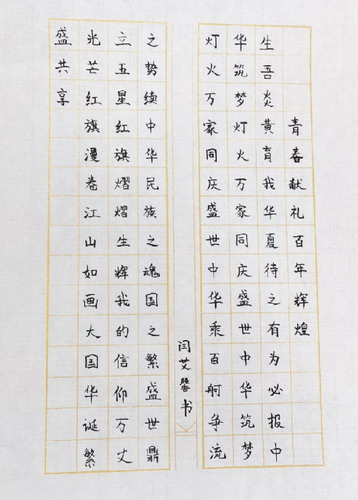 青春献礼百年辉煌
生吾炎黄育我华夏待之有为必报中
华筑梦灯火万家同庆盛世中华筑梦
灯火万家同庆盛世中华乘百舸争流
闫艾馨书
之势续中华民族之魂国之繁盛世鼎
立五星红旗熠熠生辉我的信仰万丈
光芒红旗漫卷江山如画大国华诞繁
盛共享